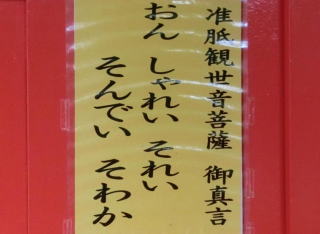 准胝観世音菩薩 御真言
おん しゃれい それい
そんでい そわか